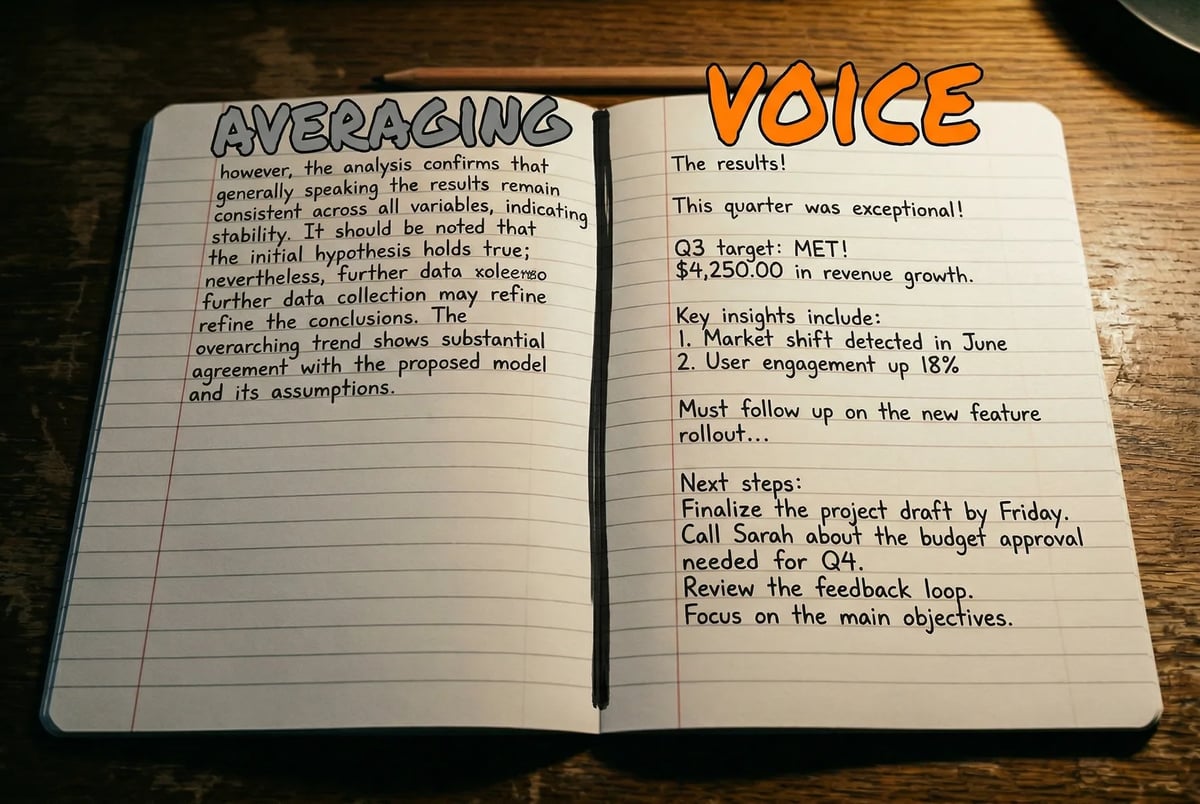 AVERAGING
however, the analysis confirms that
generally speaking the results remain
consistent across all variables, indicating
stability. It should be noted that
the initial hypothesis holds true;
nevertheless, further data
further data collection may refine
refine the conclusions. The
overarching trend shows substantial
agreement with the proposed model
and its assumptions.
VOICE
The results!
This quarter was exceptional!
Q3 target: MET!
$4,250.00 in revenue growth.
Key insights include:
1. Market shift detected in June
2. User engagement up 18%
Must follow up on the new feature
rollout...
Next steps:
Finalize the project draft by Friday.
Call Sarah about the budget approval
needed for Q4.
Review the feedback loop.
Focus on the main objectives.